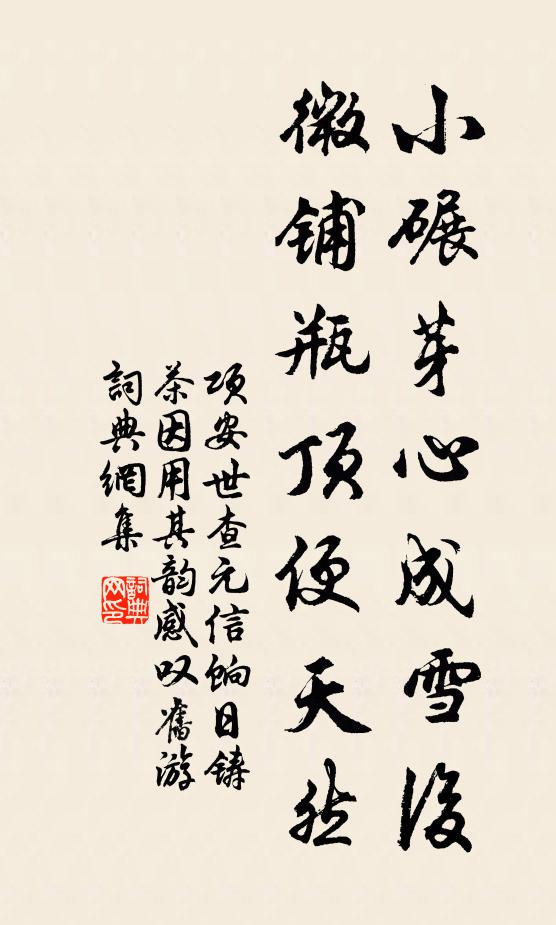 小碾芽心成雪後
微铺瓶顶便天然
项安世查元信餉日鑄
茶因用其韵感叹舊游
詞典網集
詞典网印